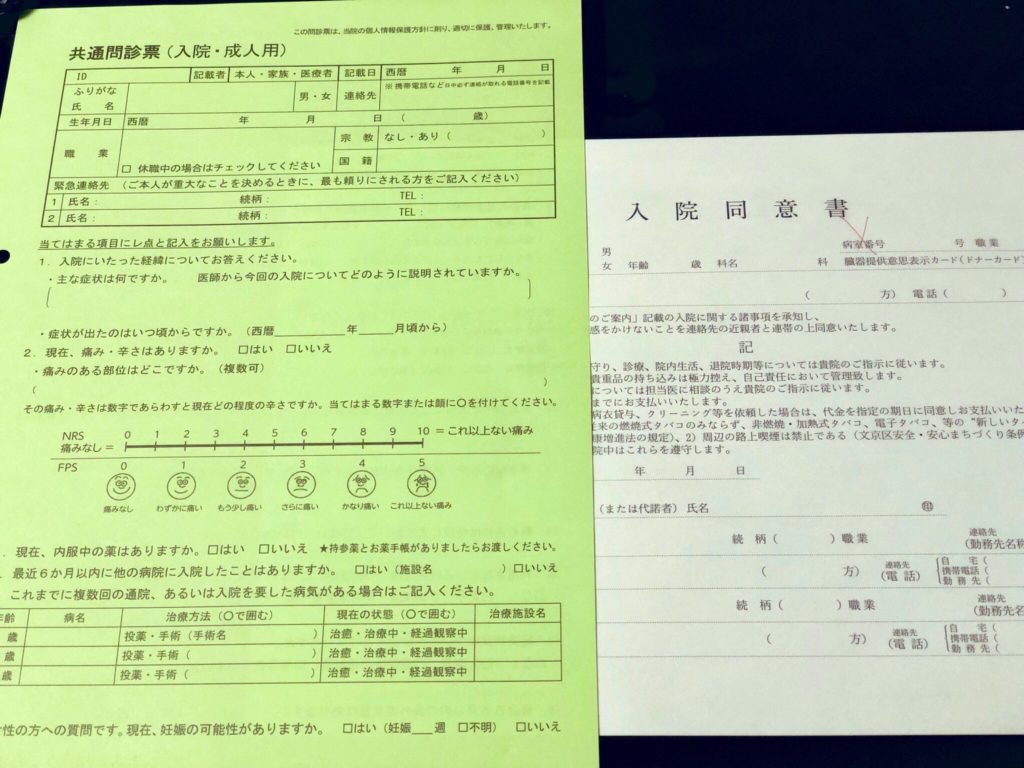 この問診票は、当院の個人情報保護方針に則り、適切に保護、管理いたします。
共通問診票(入院・成人用)
ID 記載者 本人・家族・医療者 記載日 西暦 年 月 日
ふりがな
氏 名 男・女 連絡先 ※携帯電話など日中必ず連絡が取れる電話番号を記載
生年月日 西暦 年 月 日 ( 歳)
職 業 宗 教 なし・あり( )
□ 休職中の場合はチェックしてください 国 籍
緊急連絡先 (ご本人が重大なことを決めるときに、最も頼りにされる方をご記入ください)
1 氏名: 続柄: TEL:
2 氏名: 続柄: TEL:
当てはまる項目にレ点と記入をお願いします。
1.入院にいたった経緯についてお答えください。
・主な症状は何ですか。 医師から今回の入院についてどのように説明されていますか。
・症状が出たのはいつ頃からですか。(西暦 年 月頃から)
2.現在、痛み・辛さはありますか。 □はい □いいえ
・痛みのある部位はどこですか。(複数可)
( )
その痛み・辛さは数字であらわすと現在どの程度の辛さですか。当てはまる数字または顔に〇を付けてください。
NRS 0 1 2 3 4 5 6 7 8 9 10 =これ以上ない痛み
痛みなし=
FPS 0 1 2 3 4 5
痛みなし わずかに痛い もう少し痛い さらに痛い かなり痛い これ以上ない痛み
現在、内服中の薬はありますか。□はい □いいえ ★持参薬とお薬手帳がありましたらお渡しください。
最近6か月以内に他の病院に入院したことはありますか。 □はい(施設名 )□いいえ
これまでに複数回の通院、あるいは入院を要した病気がある場合はご記入ください。
年齢 病名 治療方法(〇で囲む) 現在の状態(〇で囲む) 治療施設名
歳 投薬・手術(手術名 ) 治癒・治療中・経過観察中
歳 投薬・手術( ) 治癒・治療中・経過観察中
歳 投薬・手術( ) 治癒・治療中・経過観察中
性の方への質問です。現在、妊娠の可能性がありますか。 □はい(妊娠 週 □不明) □いいえ
入院同意書
病室番号 号 職業
男
女 年齢 歳 科名 科 臓器提供意思表示カード(ドナーカード)
( 方) 電話( )
のご案内」記載の入院に関する諸事項を承知し、
惑をかけないことを連絡先の近親者と連帯の上同意いたします。
記
守り、診療、院内生活、退院時期等については貴院のご指示に従います。
貴重品の持ち込みは極力控え、自己責任において管理致します。
については担当医に相談のうえ貴院のご指示に従います。
までにお支払いいたします。
病衣貸与、クリーニング等を依頼した場合は、代金を指定の期日に同意しお支払いいた
従来の燃焼式タバコのみならず、非燃焼・加熱式タバコ、電子タバコ、等の“新しいタ
康増進法の規定)、2)周辺の路上喫煙は禁止である(文京区安全・安心まちづくり条例
院中はこれらを遵守します。
年 月 日
(または代諾者)氏名 ㊞
続 柄( )職業 連絡先
(勤務先名称
( 方) 連絡先
(電話) 自 宅(
携帯電話(
勤 務 先(
続 柄( )職業 連絡先
(勤務先名
( 方) 連絡先
(電話) 自 宅(
携帯電話(
勤 務 先(